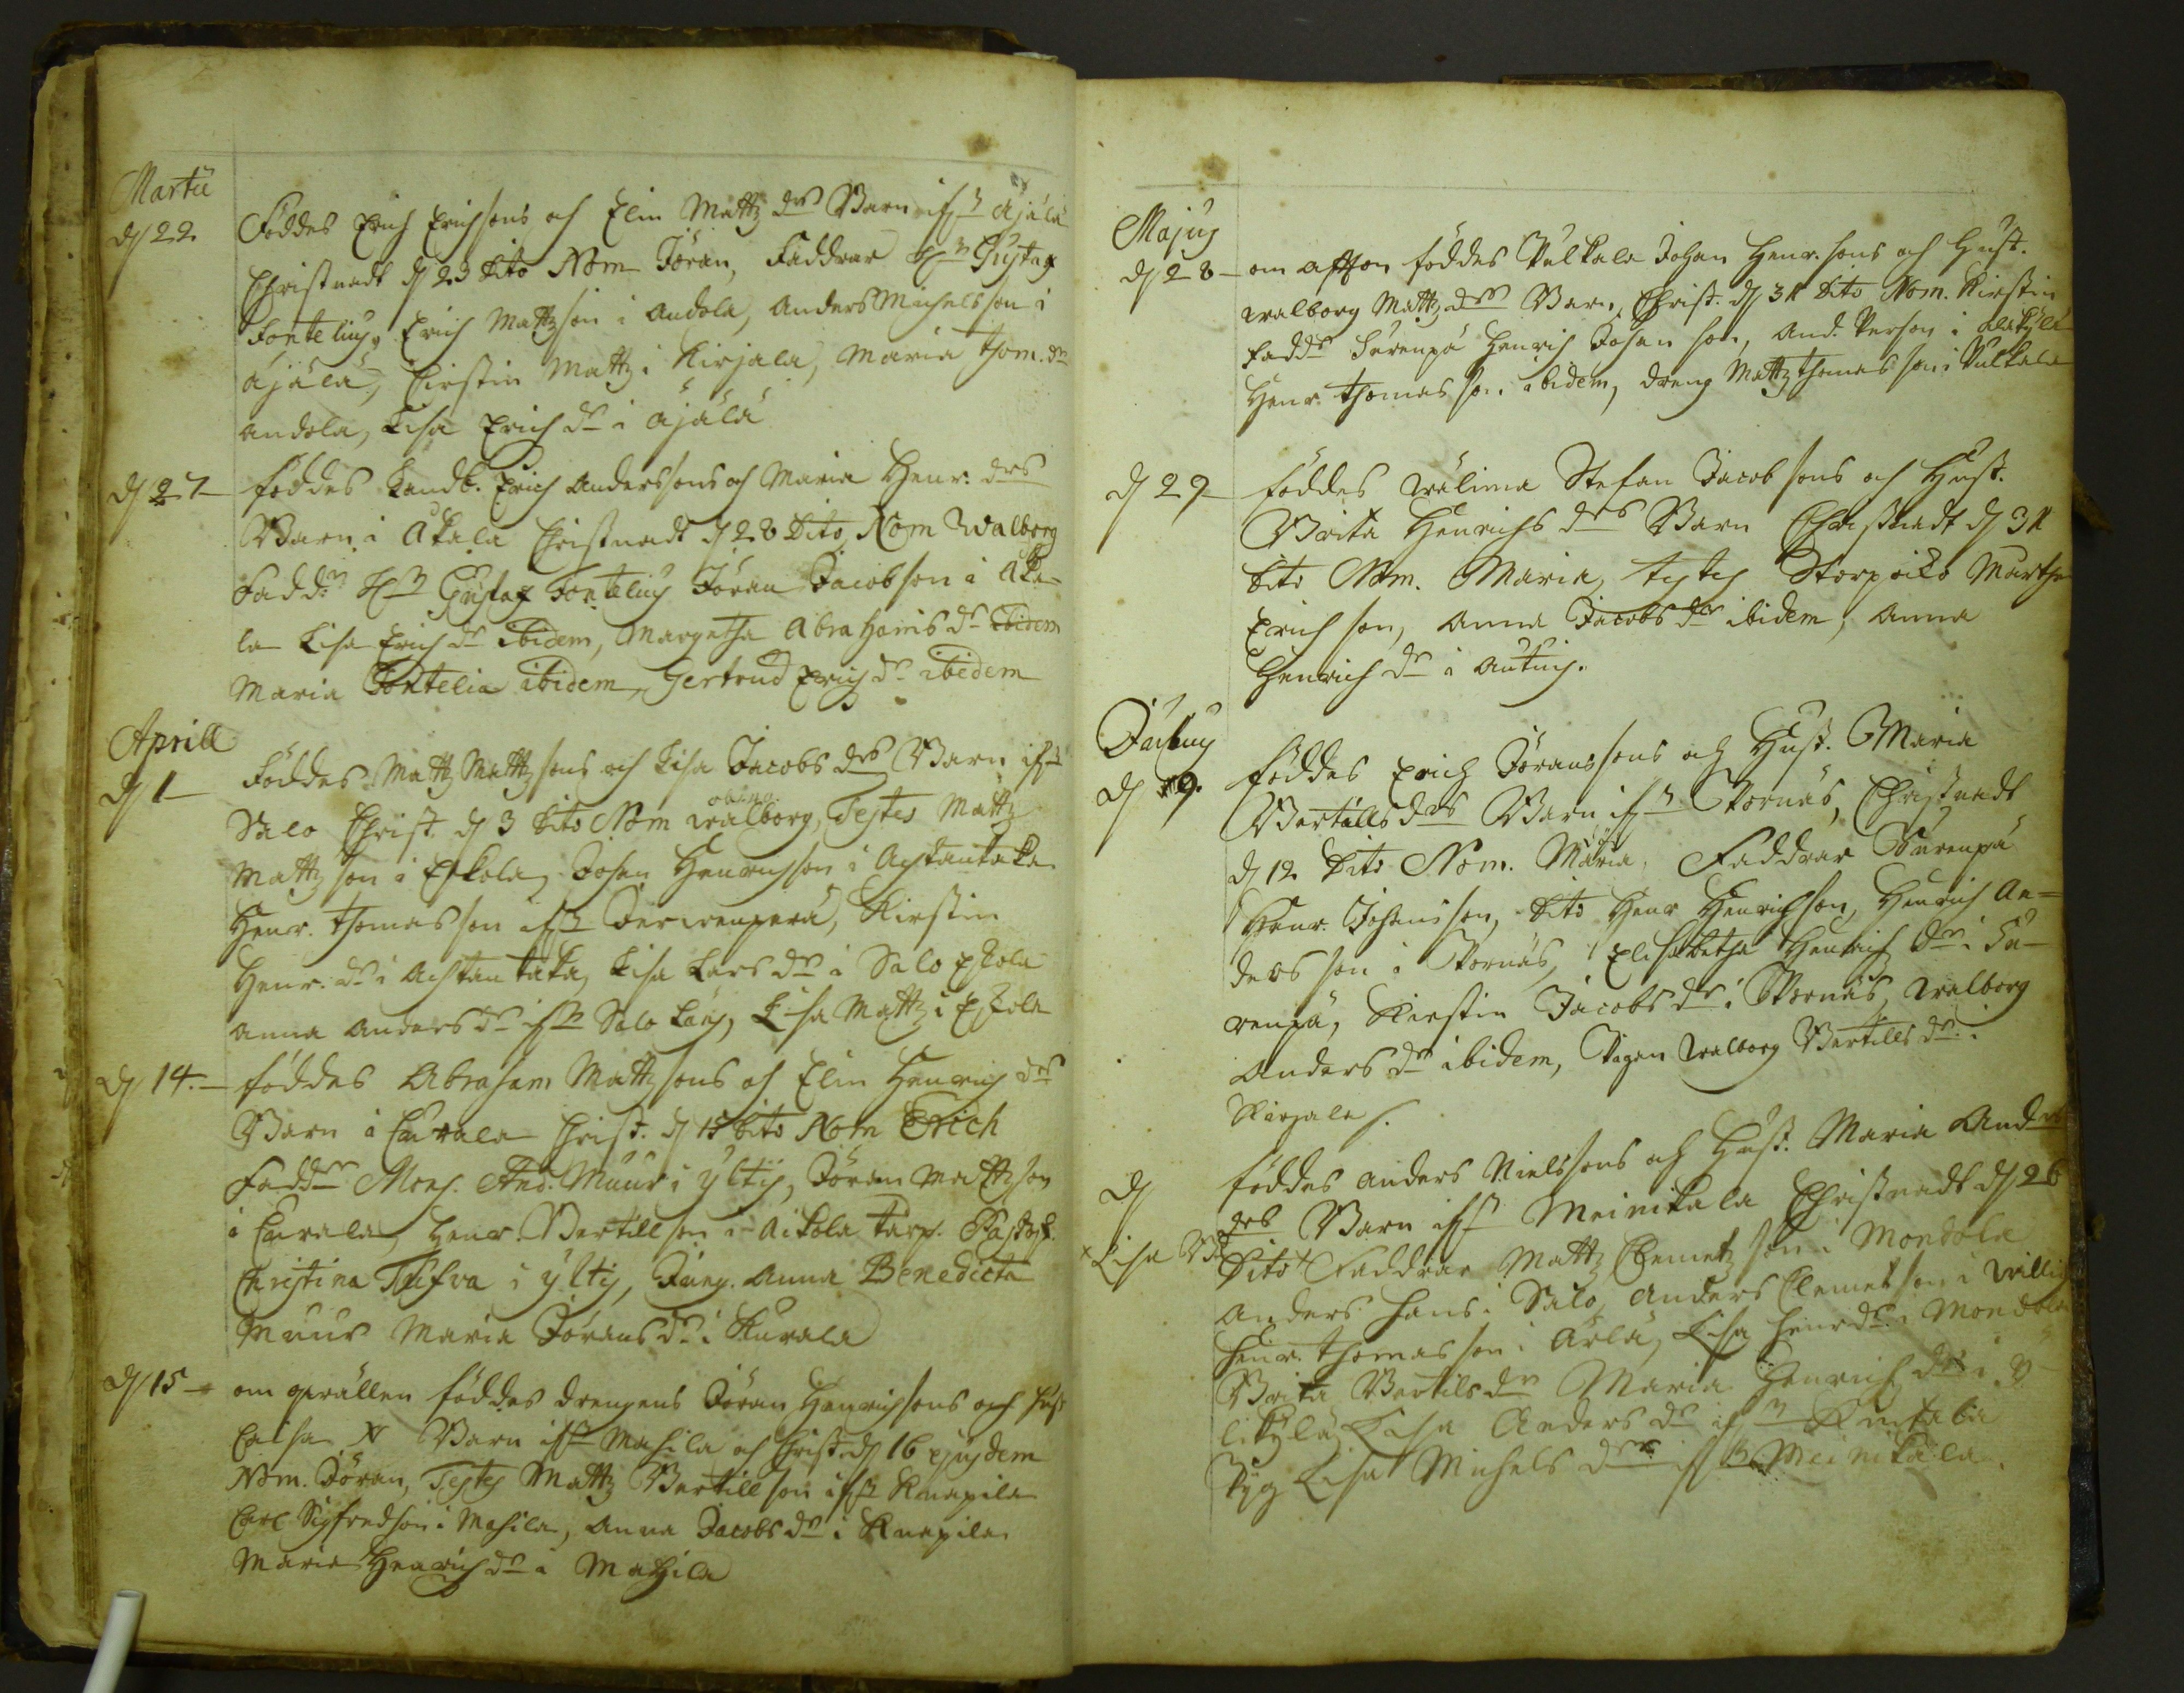 Martii
d 22 Föddes Erich Erichsons och Elin Mattz drs Barn ifrn Äjälä
Christnadt d 23 dito Nom Jöran, Faddrar Hrn Gustaf
Fontelius, Erich Mattzson i Andola, Anders Michelsson i
Äjälä, Kirstin Mattz i Kirjala, Maria Thom. dr
Andola, Lisa Erich dr i Äjälä
d 27 föddes Landb. Erich Anderssons och Maria Henr. drs
Barn i Akala Christnadt d 28 Dito, Nom Walborg
Fadd. Hrn Gustaf Fontelius Jöran Jacobson i Aka-
la Lisa Erich dr ibidem, Margetha Abrahams dr ibidem
Maria Fontelia ibidem, Gertrud Erich dr ibidem
Aprill
d 1 Föddes Mattz Mattzsons och Lisa Jacobs drs Barn ifrn
Salo Christ. d 3 dito Nom Walborg, Testes Mattz
Mattzson i Eskola, Johan Henrichson i
Henr. Thomasson ifrn, Kirstin
Henr. dr i, Lisa Lars dr i Salo Eskola
Anna Anders dr ifrn Salo, Lisa Mattz i Eskola
d 14. föddes Abraham Mattzsons och Elin Henrich drs
Barn i Christ. d 15 dito Nom Erich
Faddr Mons. And. Muur i Yltis, Jöran Mattzson
i Henr. Bertillson i Aikola
Christina i Yltis, Jung. Anna Benedicta
Muur Maria Jörans dr i Kurala
d 15 om qwällen föddes drengens Jöran Henrichsons och hust
Caisa N Barn ifrn Mahila och Christ. d 16 ejusdem
Nom. Jöran, Testes Mattz Bertillson ifrn Knapila
Carl Sigfredson i Mahila, Anna Jacobs dr i Knapila
Maria Henrich dr i Mahila
Majus
d 28 om afton föddes Pulkala Johan Henr. sons och Hust.
Walborg Mattz drs Barn, Christ. d 31 dito Nom. Kirstin
Fadd Särenpä Henrich Johanson, And. Person i Alikylä
Henr. Thomasson ibidem, dreng Mattz Thomasson i Pulkala
d 29 föddes Wälima Stefan Jacobsons och Hust.
Brita Henrichs drs Barn Christnadt d 31
dito Nom. Maria, testes Storpoiko
Erichson, Anna Jacobs dr ibidem, Anna
Henrich dr i
Junius
d 9. föddes Erich Joranssons och Hust. Maria
Bertills drs Barn ifrn Stornäs, Christnadt
d 12 dito Nom. Maria, Faddrar Särenpä
Henr. Johansson, dito Henr Henrichson, Henrich An=
dersson i Stornäs, Elisabetha Henrich dr i Sä-
renpä, Kirstin Jacobs dr i Stornäs, Walborg
Anders dr ibidem, Pigan Walborg Bertills dr i
Kirjala
d föddes Anders Nielssons och Hust. Maria And
drs Barn ifrn Meinikala Christnadt d 26
+ Lisa dito + Faddrar Mattz Clemetzson i Mondola
Anders Hans i Salo, Anders Clemetson i
Henr. Thomasson i Ärlä, Lisa Henr dr i Mondola
Brita Bertils dr Maria Henrich dr i
Lisa Anders dr ifrn
Pig Lisa Michels dr ifrn Meinikala.